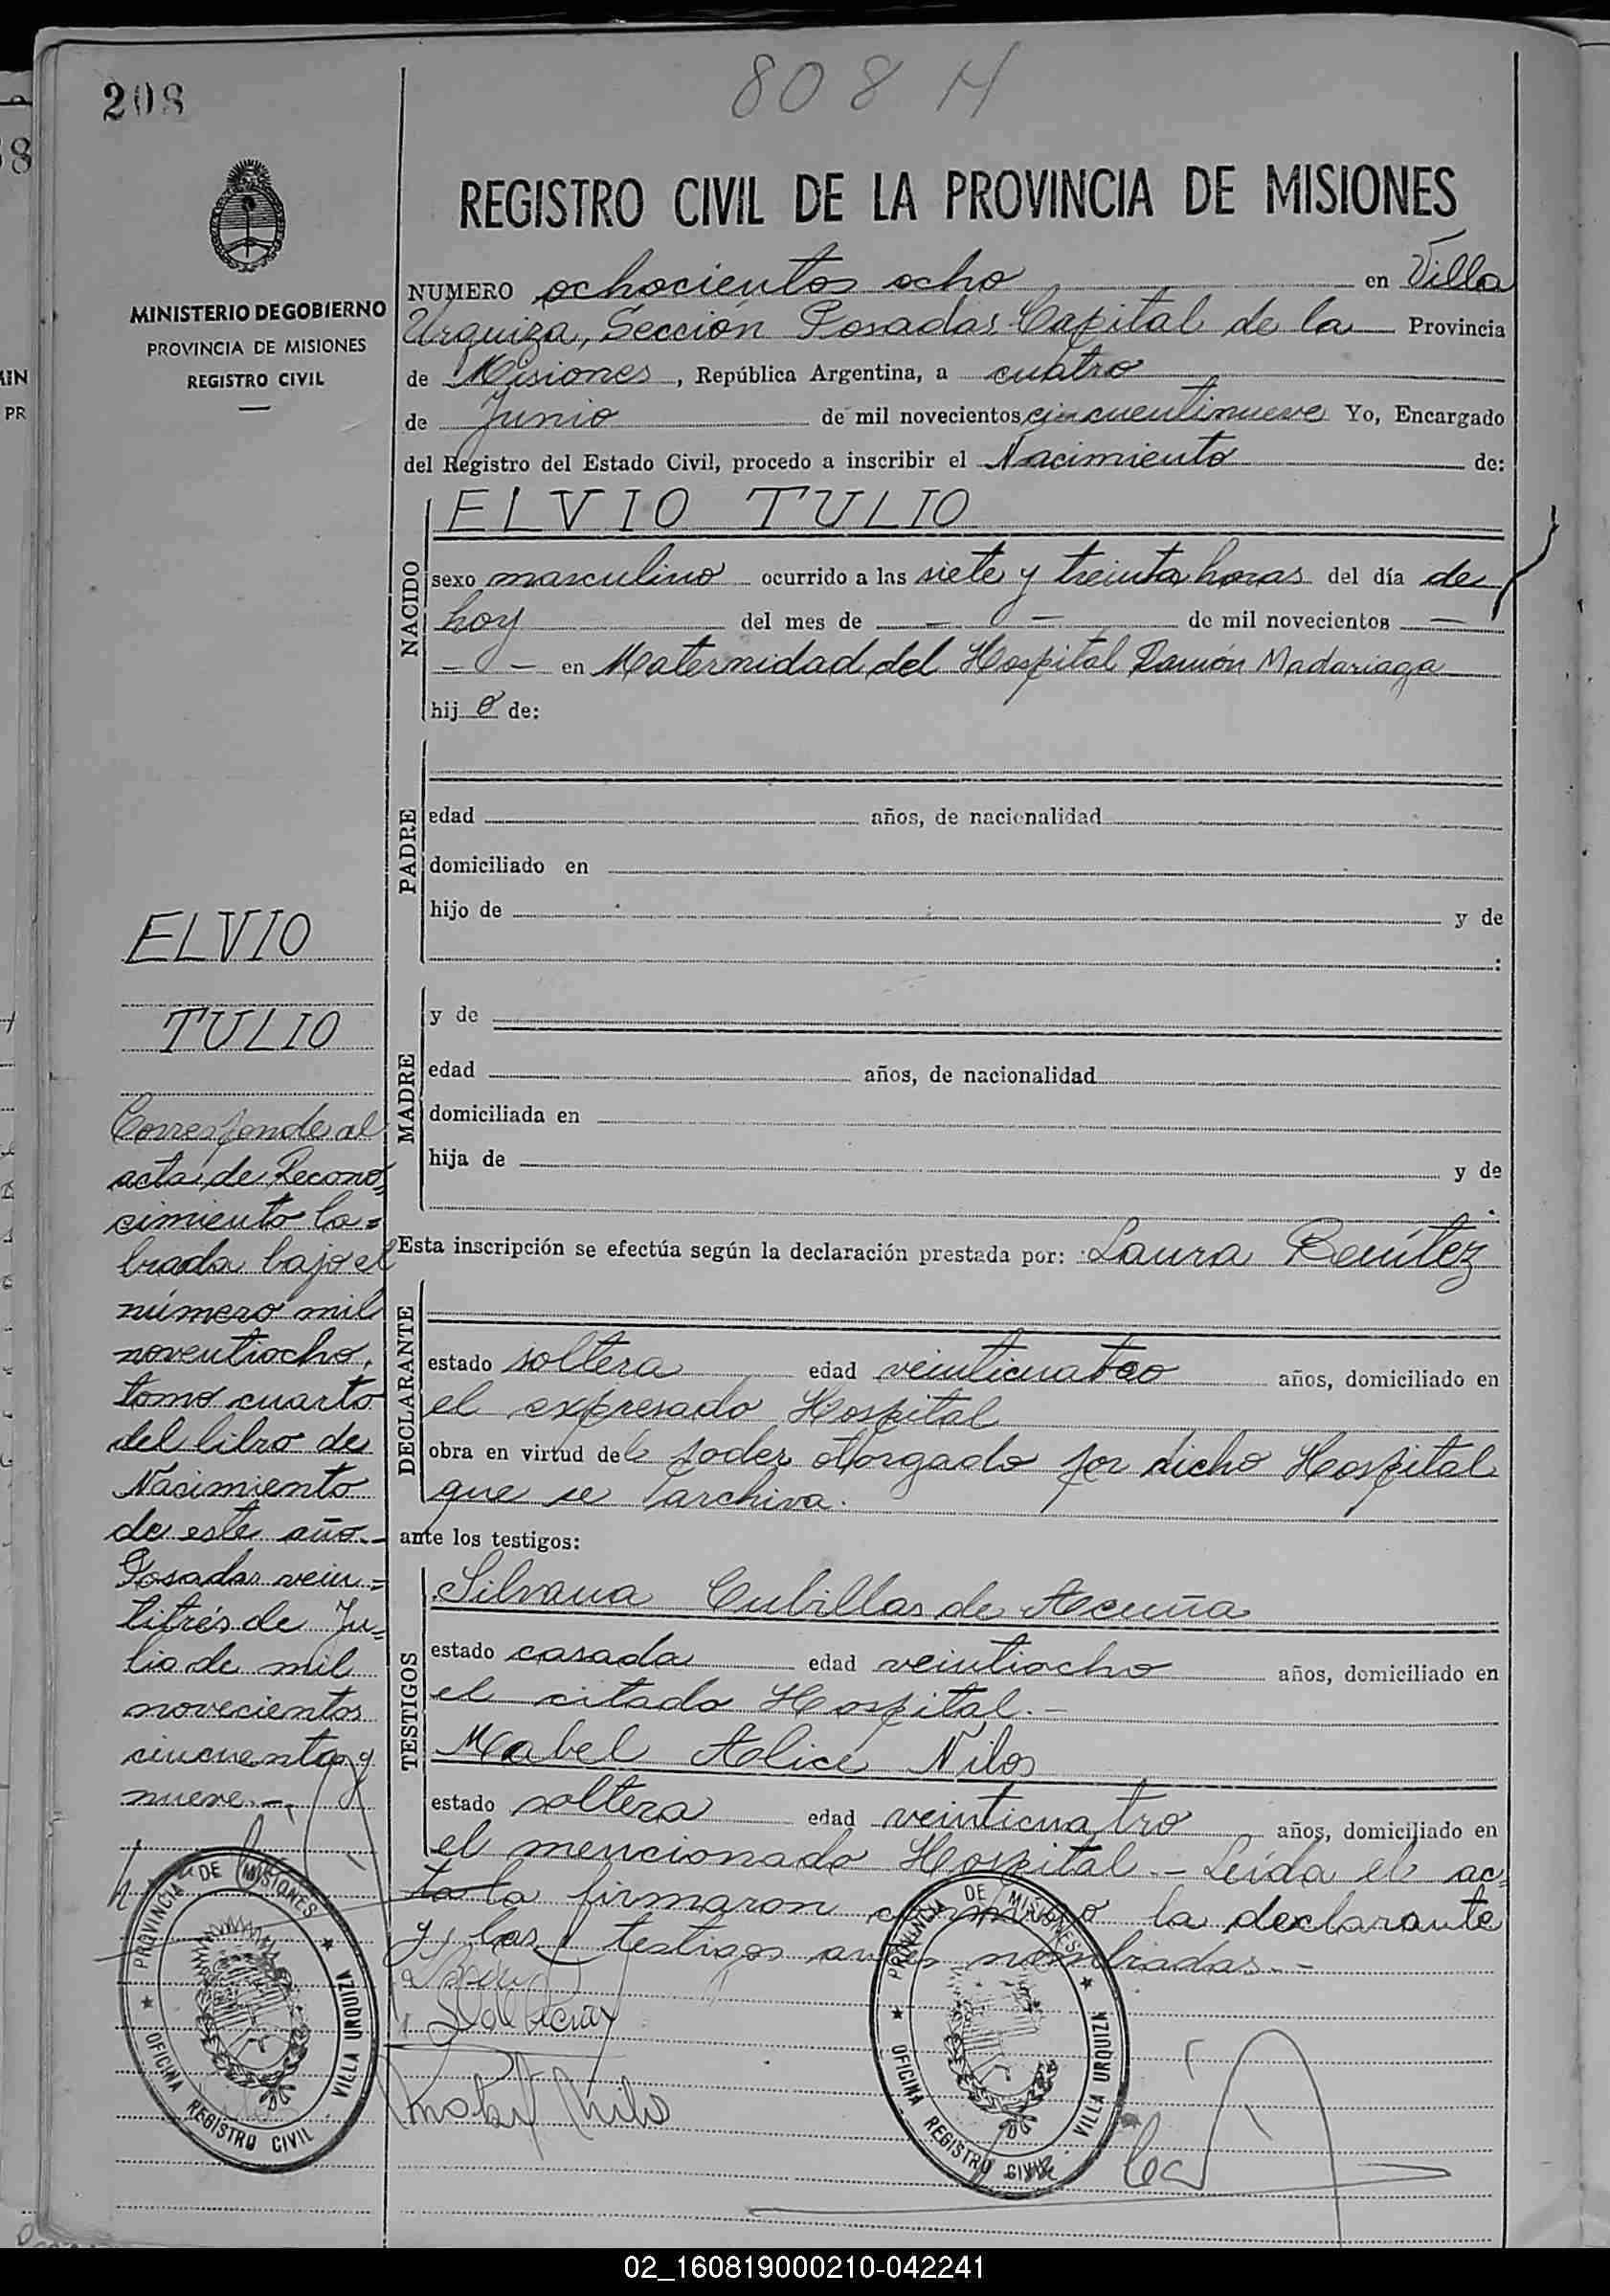 208
808 H
MINISTERIO DE GOBIERNO
PROVINCIA DE MISIONES
REGISTRO CIVIL
REGISTRO CIVIL DE LA PROVINCIA DE MISIONES
NUMERO ochocientos ocho en Villa
Urquiza, Sección Posadas Capital de la Provincia
de Misiones, República Argentina, a cuatro
de Junio de mil novecientos cincuentinueve Yo, Encargado
del Registro del Estado Civil, procedo a inscribir el Nacimiento de:
NACIDO
ELVIO TULIO
sexo masculino ocurrido a las siete y treinta horas del día de
hoy del mes de — — de mil novecientos —
— — en Maternidad del Hospital Ramón Madariaga
hijo de:
PADRE
edad años, de nacionalidad
domiciliado en
hijo de y de
MADRE
y de
edad años, de nacionalidad
domiciliada en
hija de y de
Esta inscripción se efectúa según la declaración prestada por: Laura Benítez
DECLARANTE
estado soltera edad veinticuatro años, domiciliado en
el expresado Hospital
obra en virtud del poder otorgado por dicho Hospital
que se archiva.
ante los testigos:
TESTIGOS
Silvana Cubillas de Acuña
estado casada edad veintiocho años, domiciliado en
el citado Hospital.-
Mabel Alice Nilos
estado soltera edad veinticuatro años, domiciliado en
el mencionado Hospital.- Leída el ac-
ta la firmaron conmigo la declarante
y las testigos antes nombradas.-
ELVIO
TULIO
Corresponde al
acta de Recono=
cimiento la=
brada bajo el
número mil
noventiocho,
tomo cuarto
del libro de
Nacimiento
de este año.-
Posadas vein=
titrés de Ju=
lio de mil
novecientos
cincuenta y
nueve.-
PROVINCIA DE MISIONES
OFICINA REGISTRO CIVIL VILLA URQUIZA
PROVINCIA DE MISIONES
OFICINA REGISTRO CIVIL VILLA URQUIZA
02_160819000210-042241